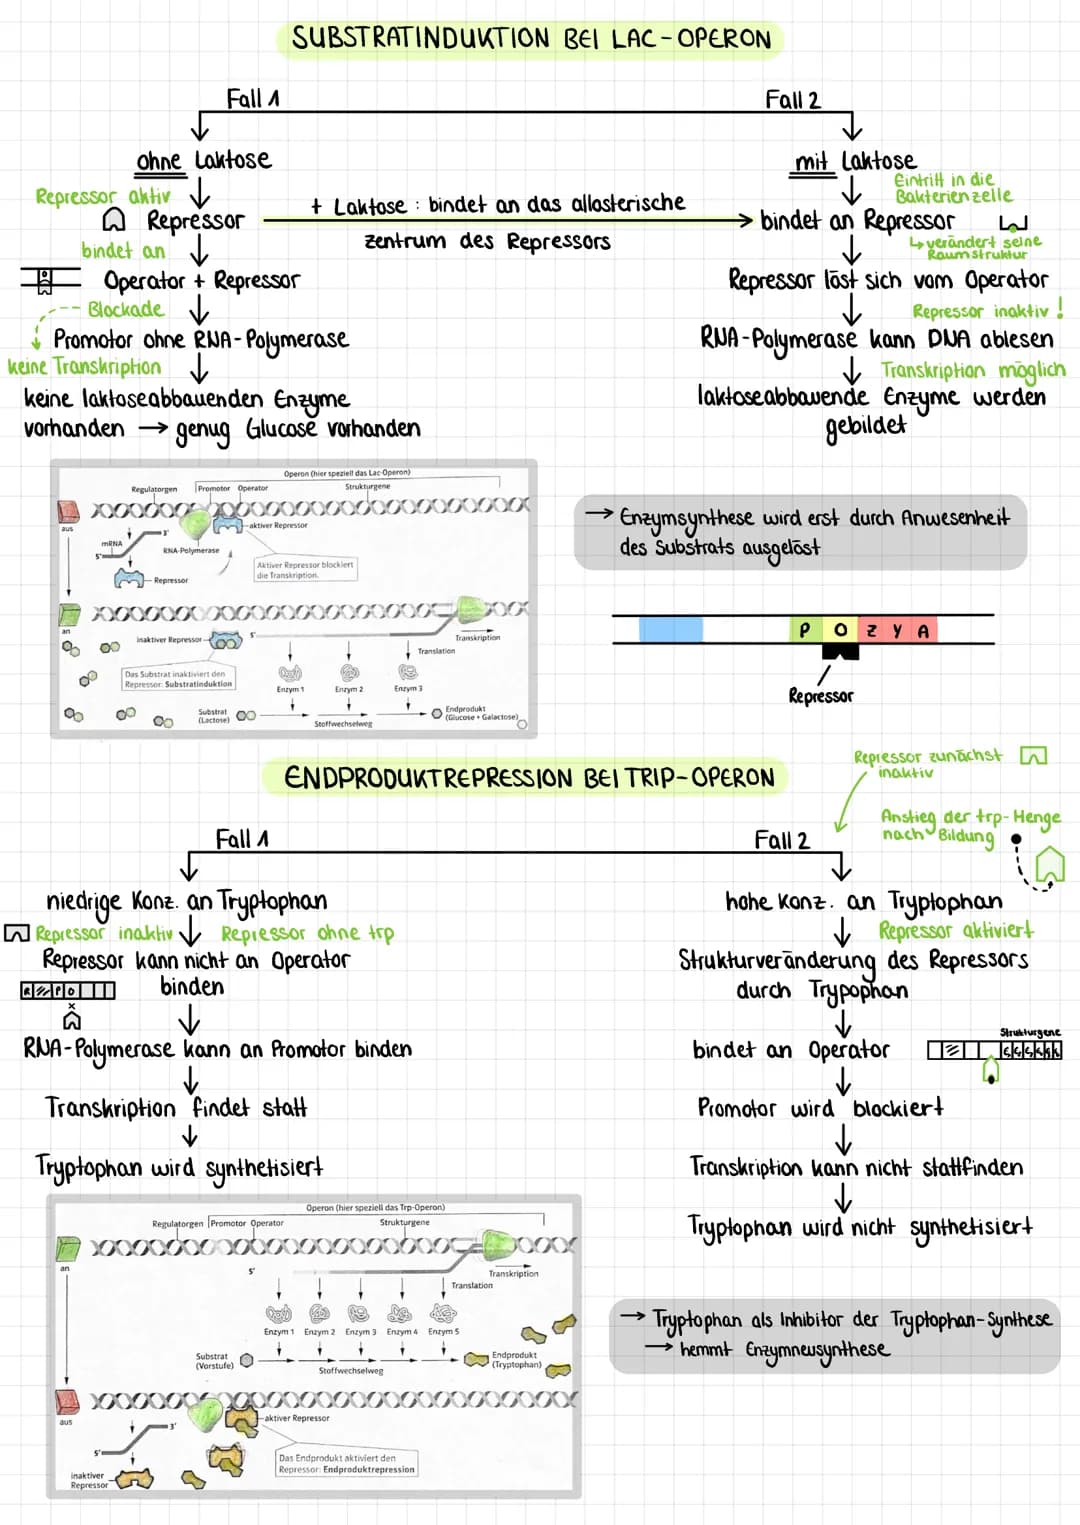 SUBSTRATINDUKTION BEI LAC-OPERON
Fall 1
ohne Laktose
Repressor aktiv
Repressor
bindet an
Operator + Repressor
Blockade
Promotor ohne RNA-Polymerase
keine Transkription
keine laktoseabbauenden Enzyme
vorhanden → genug Glucose vorhanden
+ Laktose : bindet an das allosterische
zentrum des Repressors
Fall 2
mit Laktose
Eintritt in die
Bakterienzelle
bindet an Repressor
↳ verändert seine
Raumstruktur
Repressor löst sich vom Operator
Repressor inaktiv !
RNA-Polymerase kann DNA ablesen
Transkription möglich
laktoseabbauende Enzyme werden
gebildet
Operon (hier speziell das Lac-Operon)
Regulatorgen Promotor Operator Strukturgene
aus
aktiver Repressor
mRNA
3'
5'
RNA-Polymerase
Aktiver Repressor blockiert
die Transkription.
Repressor
an
inaktiver Repressor
5'
Transkription
Translation
Das Substrat inaktiviert den
Repressor: Substratinduktion
Enzym 1 Enzym 2 Enzym 3
Substrat
(Lactose)
Stoffwechselweg
Endprodukt
(Glucose + Galactose)
→ Enzymsynthese wird erst durch Anwesenheit
des Substrats ausgelöst
P O Z Y A
Repressor
ENDPRODUKTREPRESSION BEI TRIP-OPERON
Repressor zunächst
inaktiv
Anstieg der trp-Menge
nach Bildung
Fall 1
niedrige Konz. an Tryptophan
Repressor inaktiv Repressor ohne trp
Repressor kann nicht an Operator
binden
R P O
x
RNA-Polymerase kann an Promotor binden
Transkription findet statt
Tryptophan wird synthetisiert
Fall 2
hohe Konz. an Tryptophan
Repressor aktiviert
Strukturveränderung des Repressors
durch Trypophan
Strukturgene
bindet an Operator
Promotor wird blockiert
Transkription kann nicht stattfinden
Tryptophan wird nicht synthetisiert
Operon (hier speziell das Trp-Operon)
Regulatorgen Promotor Operator Strukturgene
an
5'
Transkription
Translation
Enzym 1 Enzym 2 Enzym 3 Enzym 4 Enzym 5
Substrat
(Vorstufe)
Stoffwechselweg
Endprodukt
(Tryptophan)
aus
aktiver Repressor
3'
5'
Das Endprodukt aktiviert den
Repressor: Endproduktrepression
inaktiver
Repressor
→ Tryptophan als Inhibitor der Tryptophan-Synthese
→ hemmt Enzymneusynthese